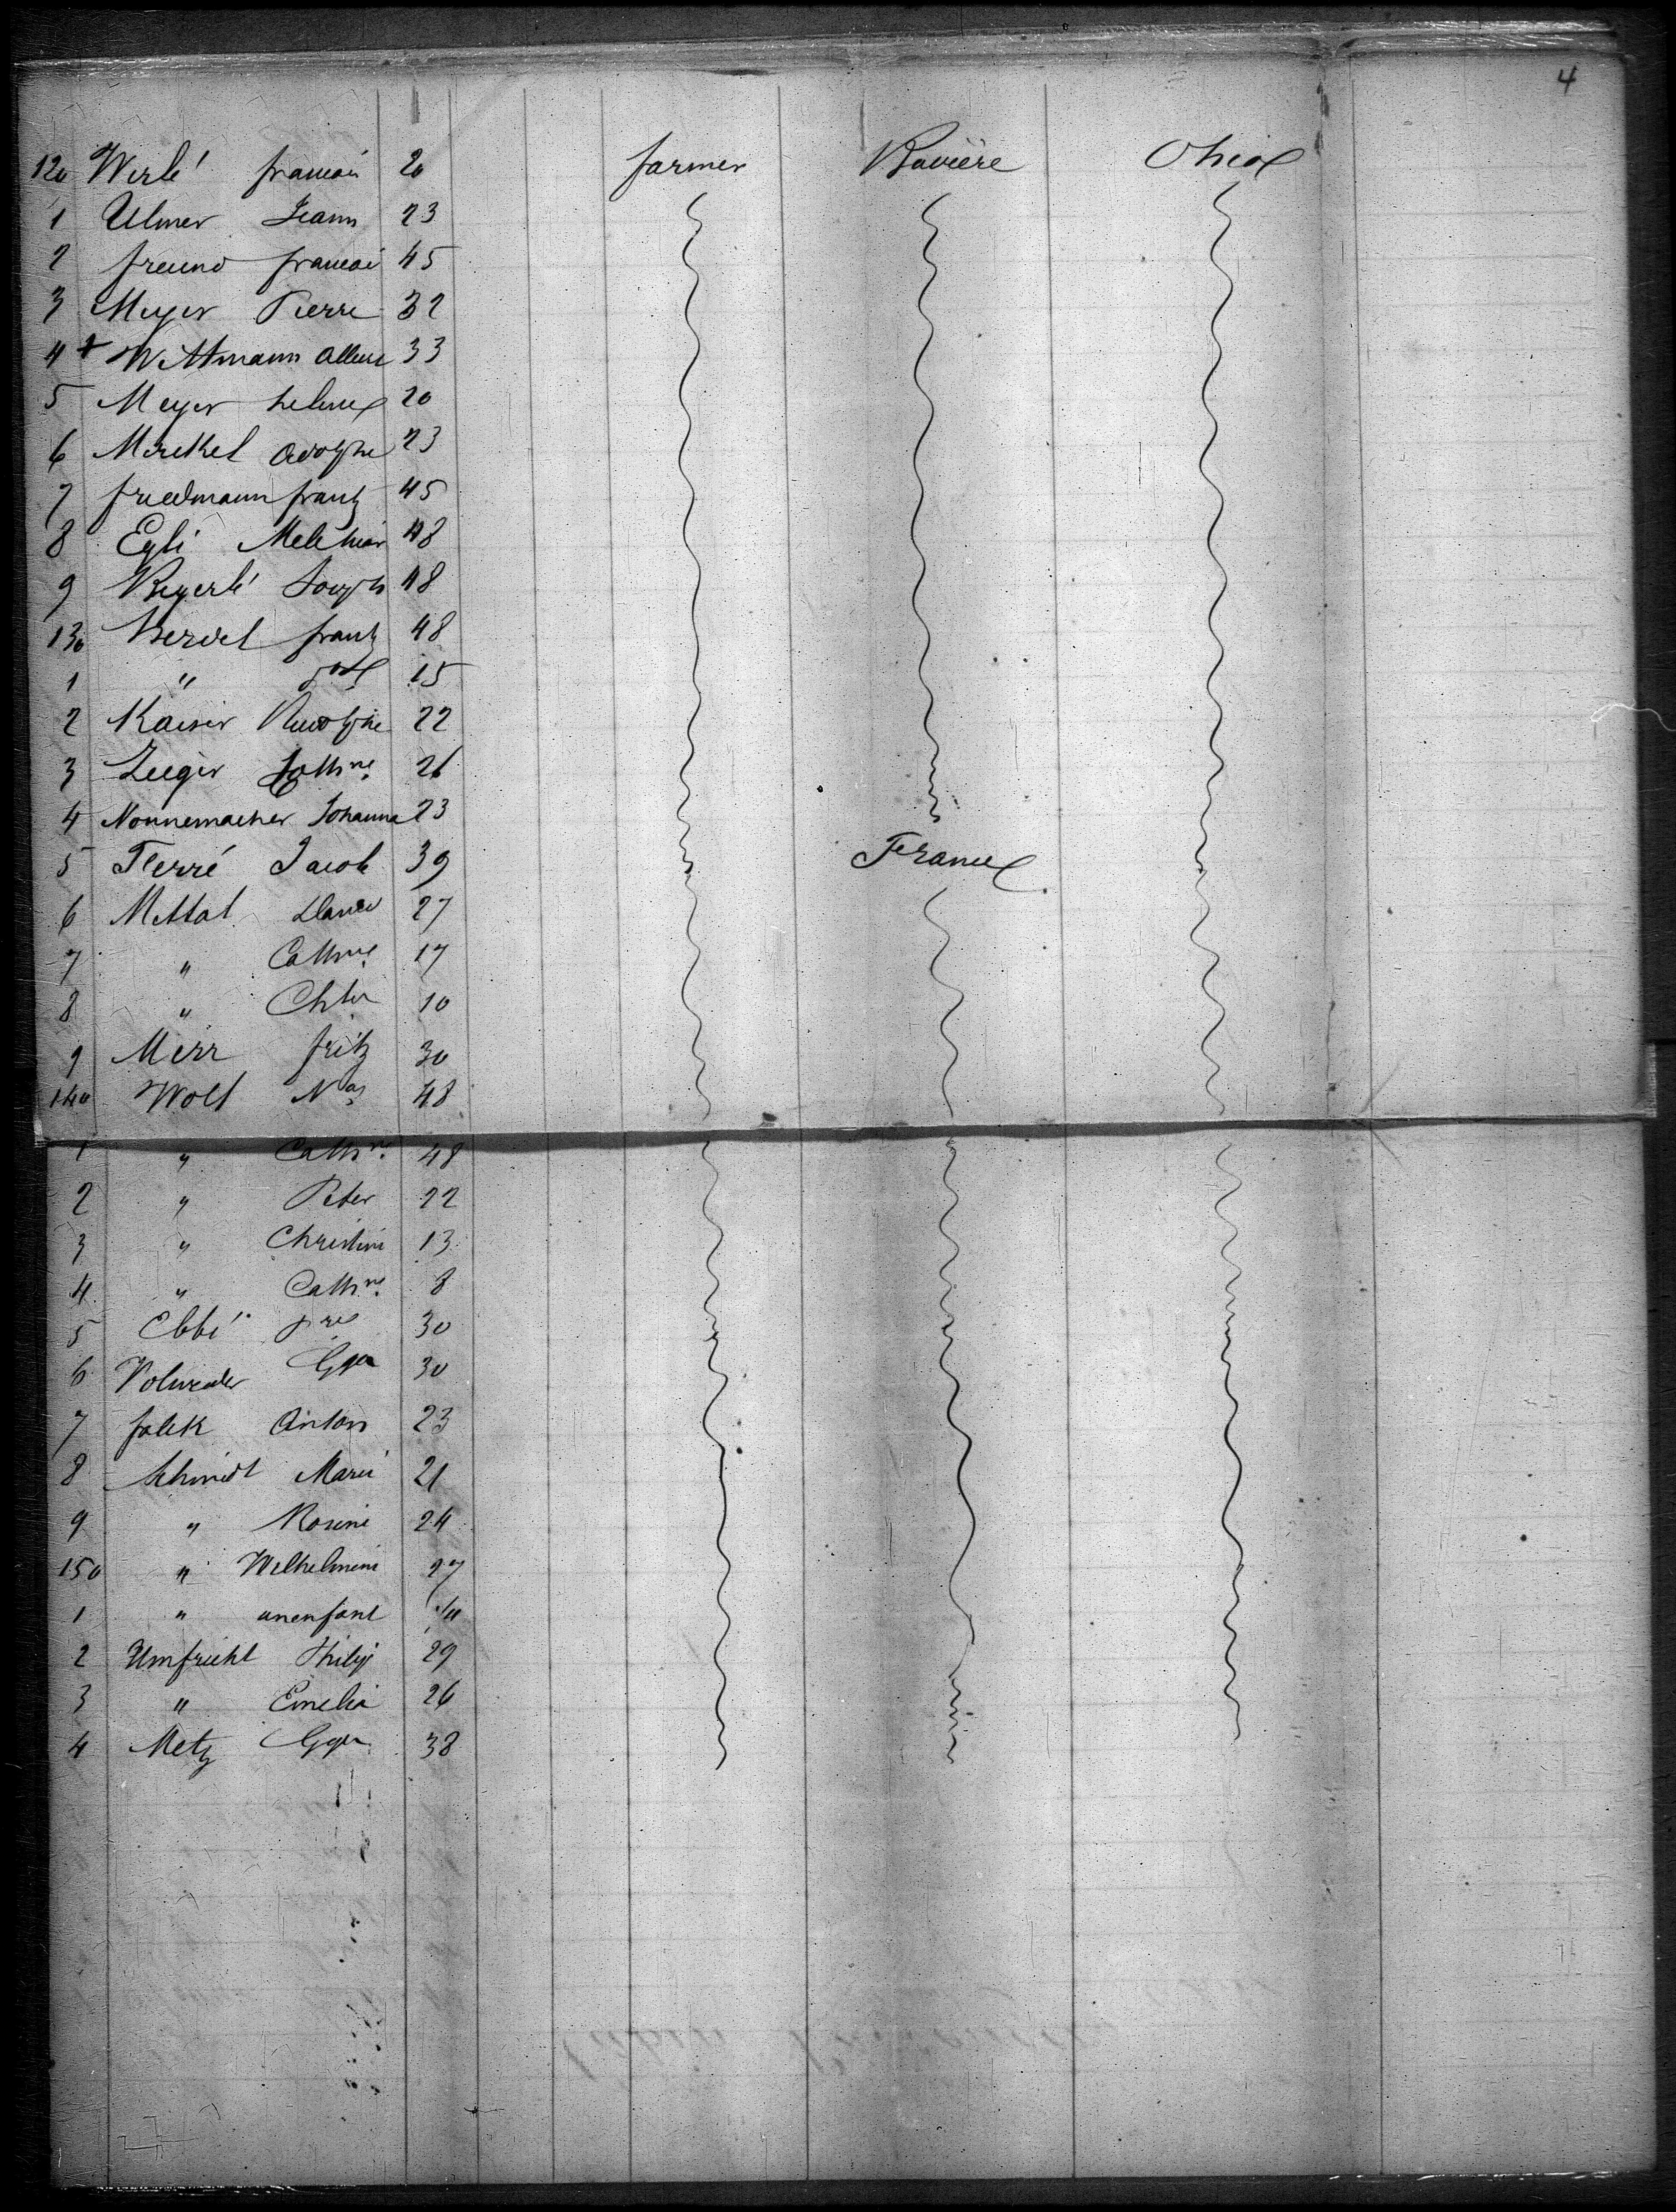 4
120 Werlé francois 20 farmer Bavière Ohio
1 Ulmer Jeann 23
2 freund francoi 45
3 Meyer Pierre 32
4 + Wittmann 33
5 Meyer 20
6 Merckel Adolphe 23
7 friedmann frantz 45
8 Egli Melchior 48
9 Beyerlé Joseph 48
130 frantz 48
1 " 15
2 Kaiser Rudolphe 22
3 Zeeger Cathne 26
4 Nonnemacher Johanna 23
5 Pierré Jacob 39 France
6 Mettat 27
7 " Cathne 17
8 " Chter 10
9 Merr fritz 30
140 Wolf Nas 48
1 " Cathne 48
2 " Peter 22
3 " Christine 13
4 " Cathne 8
5 Ebbé 30
6 30
7 falck Anton 23
8 Schmidt Marie 21
9 " Rosine 24
150 " Wilhelmine 27
1 " un enfant
2 Umfricht Philip 29
3 " Emelia 26
4 Metz 38